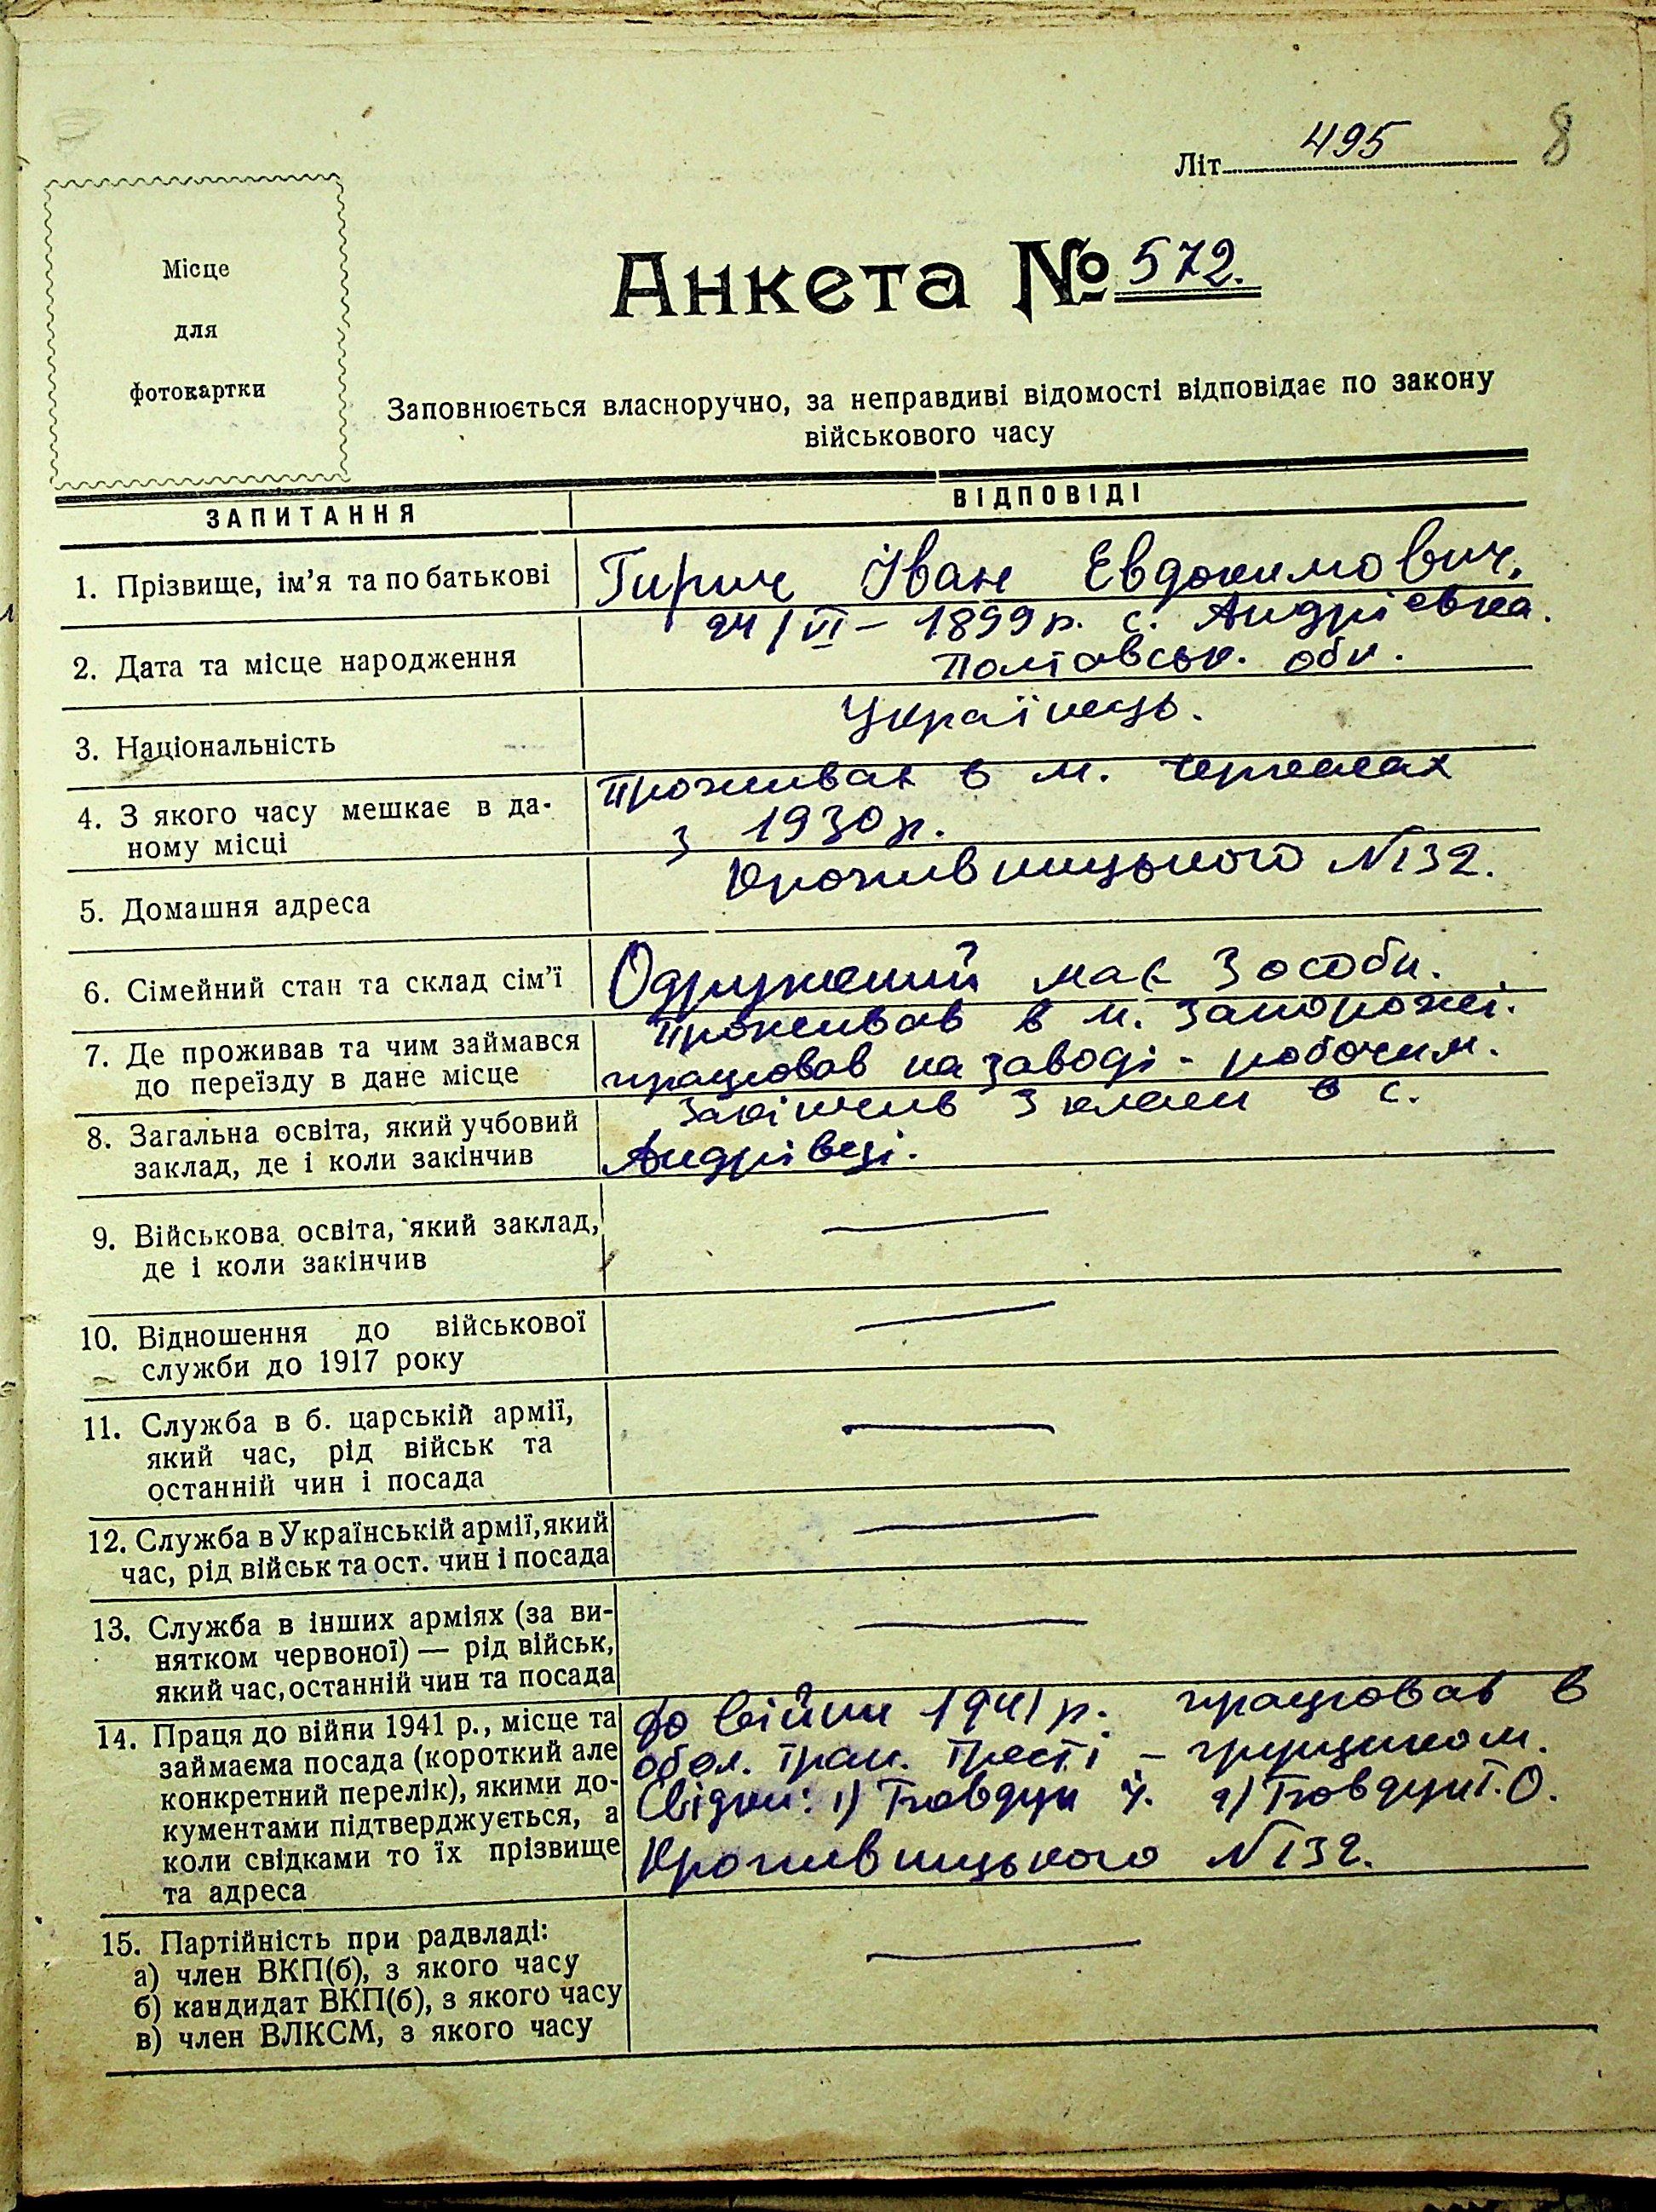 Літ. 495 8
Місце
для
фотокартки
Анкета № 572.
Заповнюється власноручно, за неправдиві відомості відповідає по закону
військового часу
ЗАПИТАННЯ
ВІДПОВІДІ
1. Прізвище, ім'я та по батькові
Гирич Іван Евдокимович,
2. Дата та місце народження
24/VI – 1899 р. с. Андрієвка.
Полтавськ. обл.
3. Національність
Українець.
4. З якого часу мешкає в да-
ному місці
Проживає в м. Черкасах
з 1930 р.
5. Домашня адреса
Кропивницького №132.
6. Сімейний стан та склад сім'ї
Одружений має 3 особи.
7. Де проживав та чим займався
до переїзду в дане місце
Проживав в м. Запорожжі.
працював на заводі - робочим.
8. Загальна освіта, який учбовий
заклад, де і коли закінчив
Закінчив 3 класи в с.
Андрівці.
9. Військова освіта, який заклад,
де і коли закінчив
—
10. Відношення до військової
служби до 1917 року
—
11. Служба в б. царській армії,
який час, рід військ та
останній чин і посада
—
12. Служба в Українській армії, який
час, рід військ та ост. чин і посада
—
13. Служба в інших арміях (за ви-
нятком червоної) — рід військ,
який час, останній чин та посада
—
14. Праця до війни 1941 р., місце та
займаєма посада (короткий але
конкретний перелік), якими до-
кументами підтверджується, а
коли свідками то їх прізвище
та адреса
До війни 1941 р. працював в
обл. Тресті – грущиком.
Свідки: 1) Товдун 2) Товдун Т. О.
Кропивницького №132.
15. Партійність при радвладі:
а) член ВКП(б), з якого часу
б) кандидат ВКП(б), з якого часу
в) член ВЛКСМ, з якого часу
—